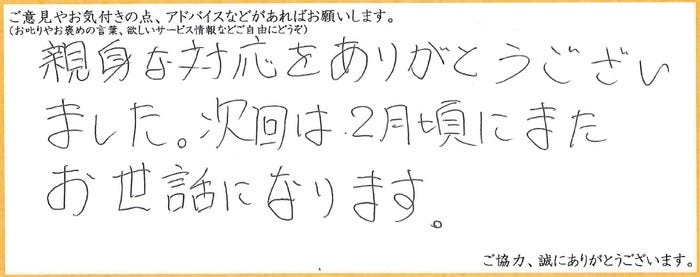 ご意見やお気付きの点、アドバイスなどがあればお願いします。
(お叱りやお褒めの言葉、欲しいサービス情報などご自由にどうぞ)
親身な対応をありがとうござい
ました。次回は2月頃にまた
お世話になります。
ご協力、誠にありがとうございます。